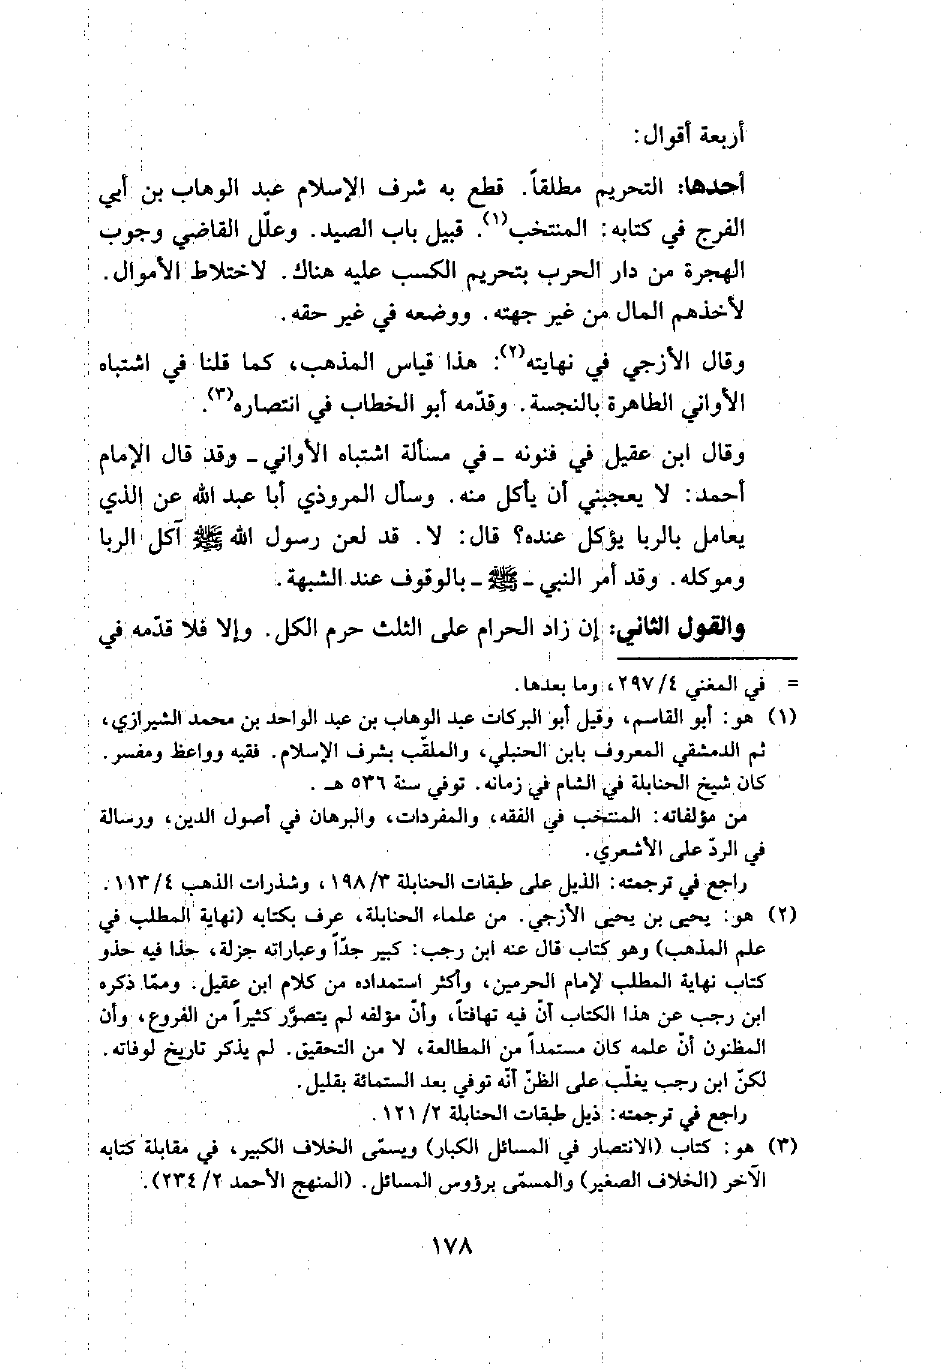 أربعة أقوال:
أحدها: التحريم مطلقاً. قطع به شرف الإسلام عبد الوهاب بن أبي
الفرج في كتابه: المنتخب(١). قبيل باب الصيد. وعلّل القاضي وجوب
الهجرة من دار الحرب بتحريم الكسب عليه هناك. لاختلاط الأموال.
لأخذهم المال من غير جهته. ووضعه في غير حقه.
وقال الأزجي في نهايته(٢): هذا قياس المذهب، كما قلنا في اشتباه
الأواني الطاهرة بالنجسة. وقدّمه أبو الخطاب في انتصاره(٣).
وقال ابن عقيل في فنونه ـ في مسألة اشتباه الأواني ـ وقد قال الإمام
أحمد: لا يعجبني أن يأكل منه. وسأل المروذي أبا عبد الله عن الذي
يعامل بالربا يؤكل عنده؟ قال: لا. قد لعن رسول الله ﷺ آكل الربا
وموكله. وقد أمر النبي ـ ﷺ ـ بالوقوف عند الشبهة.
والقول الثاني: إن زاد الحرام على الثلث حرم الكل. وإلا فلا قدّمه في
= في المغني ٢٩٧/٤، وما بعدها.
(١) هو: أبو القاسم، وقيل أبو البركات عبد الوهاب بن عبد الواحد بن محمد الشيرازي،
ثم الدمشقي المعروف بابن الحنبلي، والملقّب بشرف الإسلام. فقيه وواعظ ومفسر.
كان شيخ الحنابلة في الشام في زمانه. توفي سنة ٥٣٦ هـ .
من مؤلفاته: المنتخب في الفقه، والمفردات، والبرهان في أصول الدين، ورسالة
في الردّ على الأشعري.
راجع في ترجمته: الذيل على طبقات الحنابلة ١٩٨/٣، وشذرات الذهب ١١٣/٤.
(٢) هو: يحيى بن يحيى الأزجي. من علماء الحنابلة، عرف بكتابه (نهاية المطلب في
علم المذهب) وهو كتاب قال عنه ابن رجب: كبير جدّاً وعباراته جزلة، حذا فيه حذو
كتاب نهاية المطلب لإمام الحرمين، وأكثر استمداده من كلام ابن عقيل. وممّا ذكره
ابن رجب عن هذا الكتاب أنّ فيه تهافتاً، وأنّ مؤلفه لم يتصوَّر كثيراً من الفروع، وأن
المظنون أنّ علمه كان مستمداً من المطالعة، لا من التحقيق. لم يذكر تاريخ لوفاته.
لكنّ ابن رجب يغلّب على الظنّ أنّه توفي بعد الستمائة بقليل.
راجع في ترجمته: ذيل طبقات الحنابلة ١٢١/٢.
(٣) هو: كتاب (الانتصار في المسائل الكبار) ويسمّى الخلاف الكبير، في مقابلة كتابه
الآخر (الخلاف الصغير) والمسمّى برؤوس المسائل. (المنهج الأحمد ٢٣٤/٢).
١٧٨